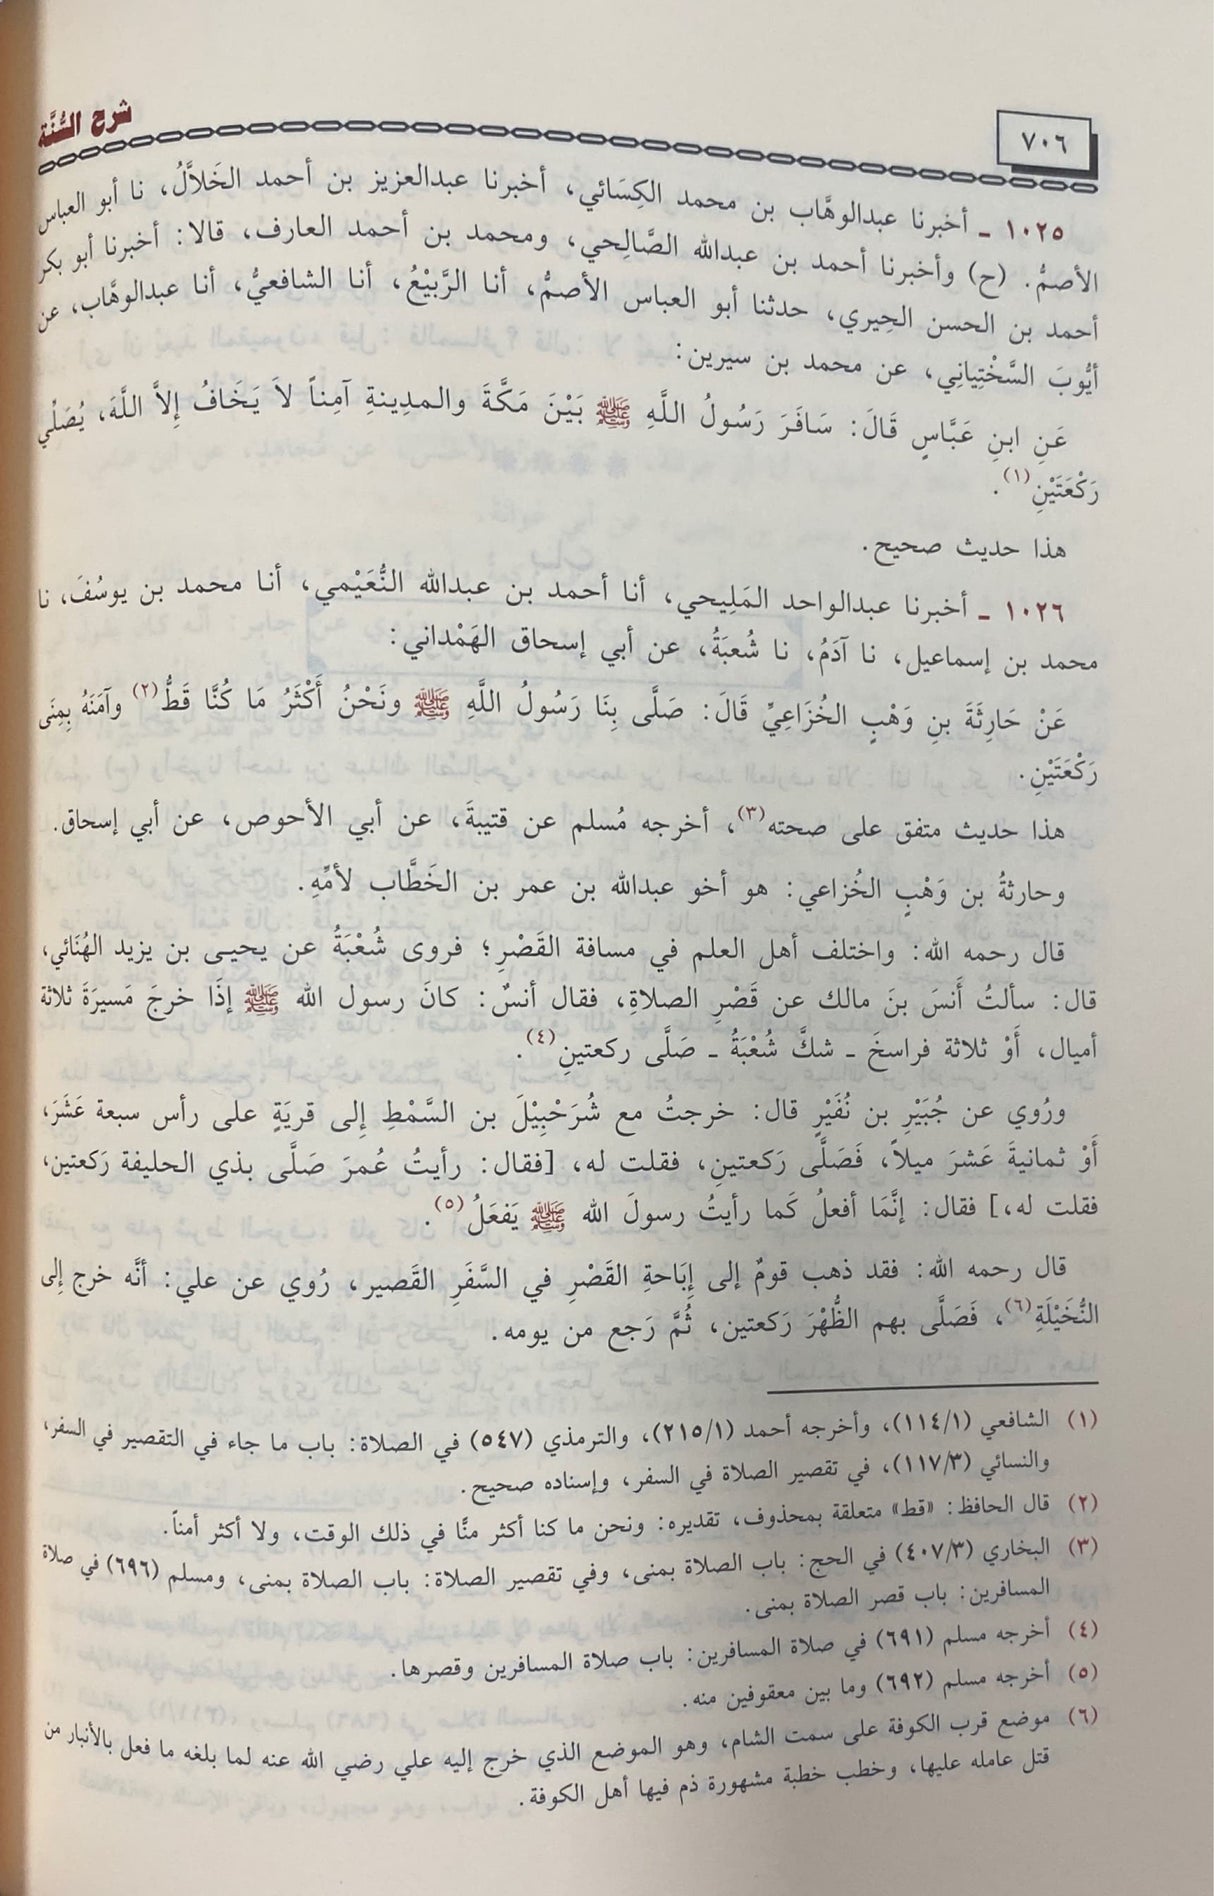 شرح السُّنَّة
٧٠٦
١٠٢٥ ـ أخبرنا عبدالوهَّاب بن محمد الكِسَائي، أخبرنا عبدالعزيز بن أحمد الخَلاَّلُ، نا أبو العباس
الأصمُّ. (ح) وأخبرنا أحمد بن عبدالله الصَّالِحي، ومحمد بن أحمد العارف، قالا: أخبرنا أبو بكر
أحمد بن الحسن الحِيري، حدثنا أبو العباس الأصمُّ، أنا الرَّبيْعُ، أنا الشافعيُّ، أنا عبدالوهَّاب، عن
أيُّوبَ السَّخْتِيانِي، عن محمد بن سيرين:
عَنِ ابنِ عَبَّاسٍ قَالَ: سَافَرَ رَسُولُ اللَّهِ ﷺ بَيْنَ مَكَّةَ والمدِينةِ آمِناً لاَ يَخَافُ إِلاَّ اللَّهَ، يُصَلِّي
رَكْعَتَيْنِ(١).
هذا حديث صحيح.
١٠٢٦ ـ أخبرنا عبدالواحد المَلِيحي، أنا أحمد بن عبدالله النُّعَيْمي، أنا محمد بن يوسُفَ، نا
محمد بن إسماعيل، نا آدَمُ، نا شُعبَةُ، عن أبي إسحاق الهَمْداني:
عَنْ حَارِثَةَ بنِ وَهْبٍ الخُزَاعِيِّ قَالَ: صَلَّى بِنَا رَسُولُ اللَّهِ ﷺ ونَحْنُ أَكْثَرُ مَا كُنَّا قَطُّ(٢) وآمَنَهُ بِمِنَى
رَكْعَتَيْنِ.
هذا حديث متفق على صحته(٣)، أخرجه مُسلم عن قتيبةَ، عن أبي الأحوص، عن أبي إسحاق.
وحارثةُ بن وَهْبٍ الخُزاعي: هو أخو عبدالله بن عمر بن الخَطَّاب لأمِّهِ.
قال رحمه الله: واختلف أهل العلم في مسافة القَصْرِ؛ فروى شُعْبَةُ عن يحيى بن يزيد الهُنَائي،
قال: سألتُ أَنسَ بنَ مالك عن قَصْرِ الصلاةِ، فقال أنسٌ: كانَ رسول الله ﷺ إذَا خرجَ مَسيرَةَ ثلاثة
أميال، أَوْ ثلاثة فراسخَ ـ شكَّ شُعْبَةُ ـ صَلَّى ركعتينِ(٤).
ورُوي عن جُبَيْرِ بن نُفَيْرٍ قال: خرجتُ مع شُرَحْبِيْلَ بن السَّمْطِ إِلى قريَةٍ على رأس سبعة عَشَرَ،
أَوْ ثمانيةَ عَشرَ ميلاً، فَصَلَّى رَكعتينِ، فقلت له، [فقال: رأيتُ عُمرَ صَلَّى بذي الحليفة رَكعتين،
فقلت له،] فقال: إنَّمَا أفعلُ كَما رأيتُ رسولَ الله ﷺ يَفعَلُ(٥).
قال رحمه الله: فقد ذهب قومٌ إلى إبَاحةِ القَصْرِ في السَّفَرِ القَصير، رُوي عن علي: أنَّه خرج إِلى
النُّخَيْلَةِ(٦)، فَصَلَّى بهم الظُّهْرَ رَكعتين، ثُمَّ رَجع من يومه.
(١) الشافعي (١١٤/١)، وأخرجه أحمد (٢١٥/١)، والترمذي (٥٤٧) في الصلاة: باب ما جاء في التقصير في السفر،
والنسائي (١١٧/٣)، في تقصير الصلاة في السفر، وإسناده صحيح.
(٢) قال الحافظ: «قط» متعلقة بمحذوف، تقديره: ونحن ما كنا أكثر منَّا في ذلك الوقت، ولا أكثر أمناً.
(٣) البخاري (٤٠٧/٣) في الحج: باب الصلاة بمنى، وفي تقصير الصلاة: باب الصلاة بمنى، ومسلم (٦٩٦) في صلاة
المسافرين: باب قصر الصلاة بمنى.
(٤) أخرجه مسلم (٦٩١) في صلاة المسافرين: باب صلاة المسافرين وقصرها.
(٥) أخرجه مسلم (٦٩٢) وما بين معقوفين منه.
(٦) موضع قرب الكوفة على سمت الشام، وهو الموضع الذي خرج إليه علي رضي الله عنه لما بلغه ما فعل بالأنبار من
قتل عامله عليها، وخطب خطبة مشهورة ذم فيها أهل الكوفة.